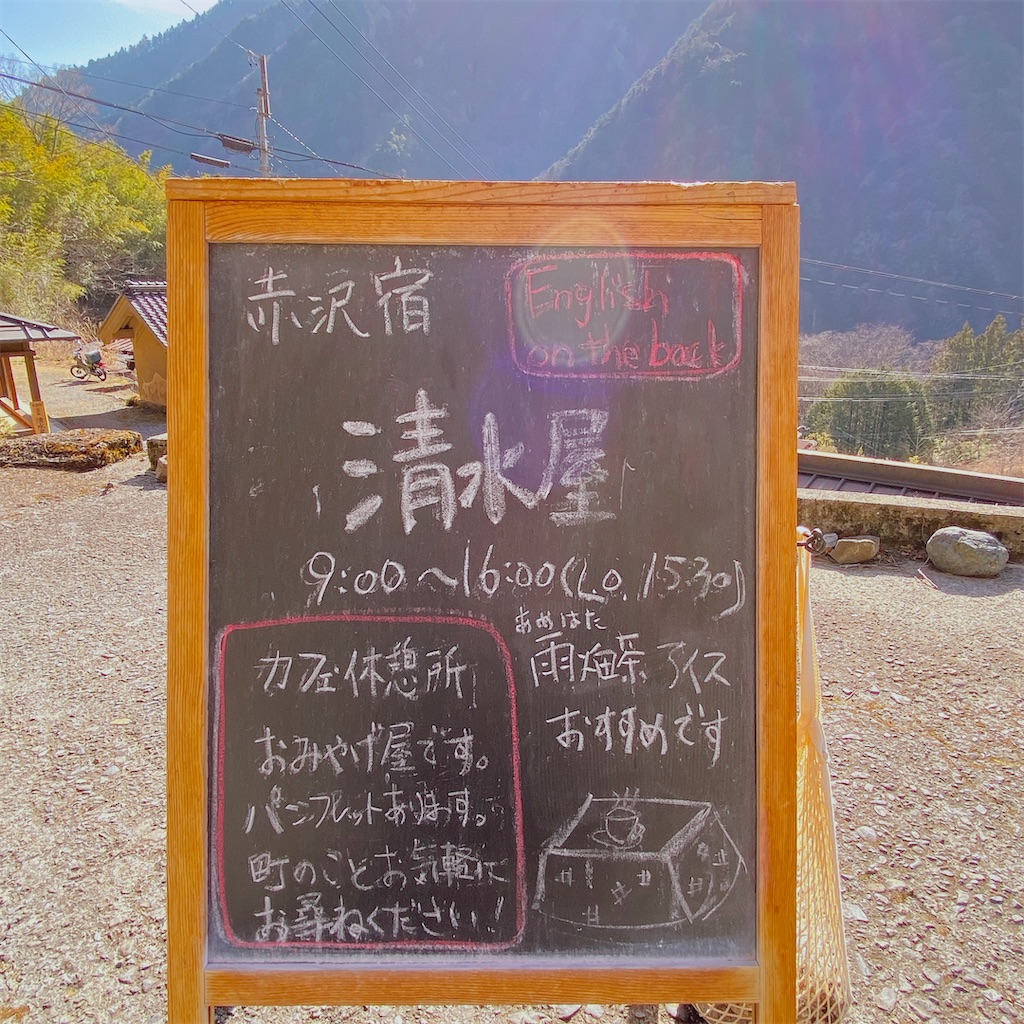 赤沢宿
English
on the back
清水屋
9:00〜16:00(L.O. 15:30)
あめはた
雨畑茶アイス
おすすめです
カフェ休憩所
おみやげ屋です。
パンフレットあります。
町のことお気軽に
お尋ねください!